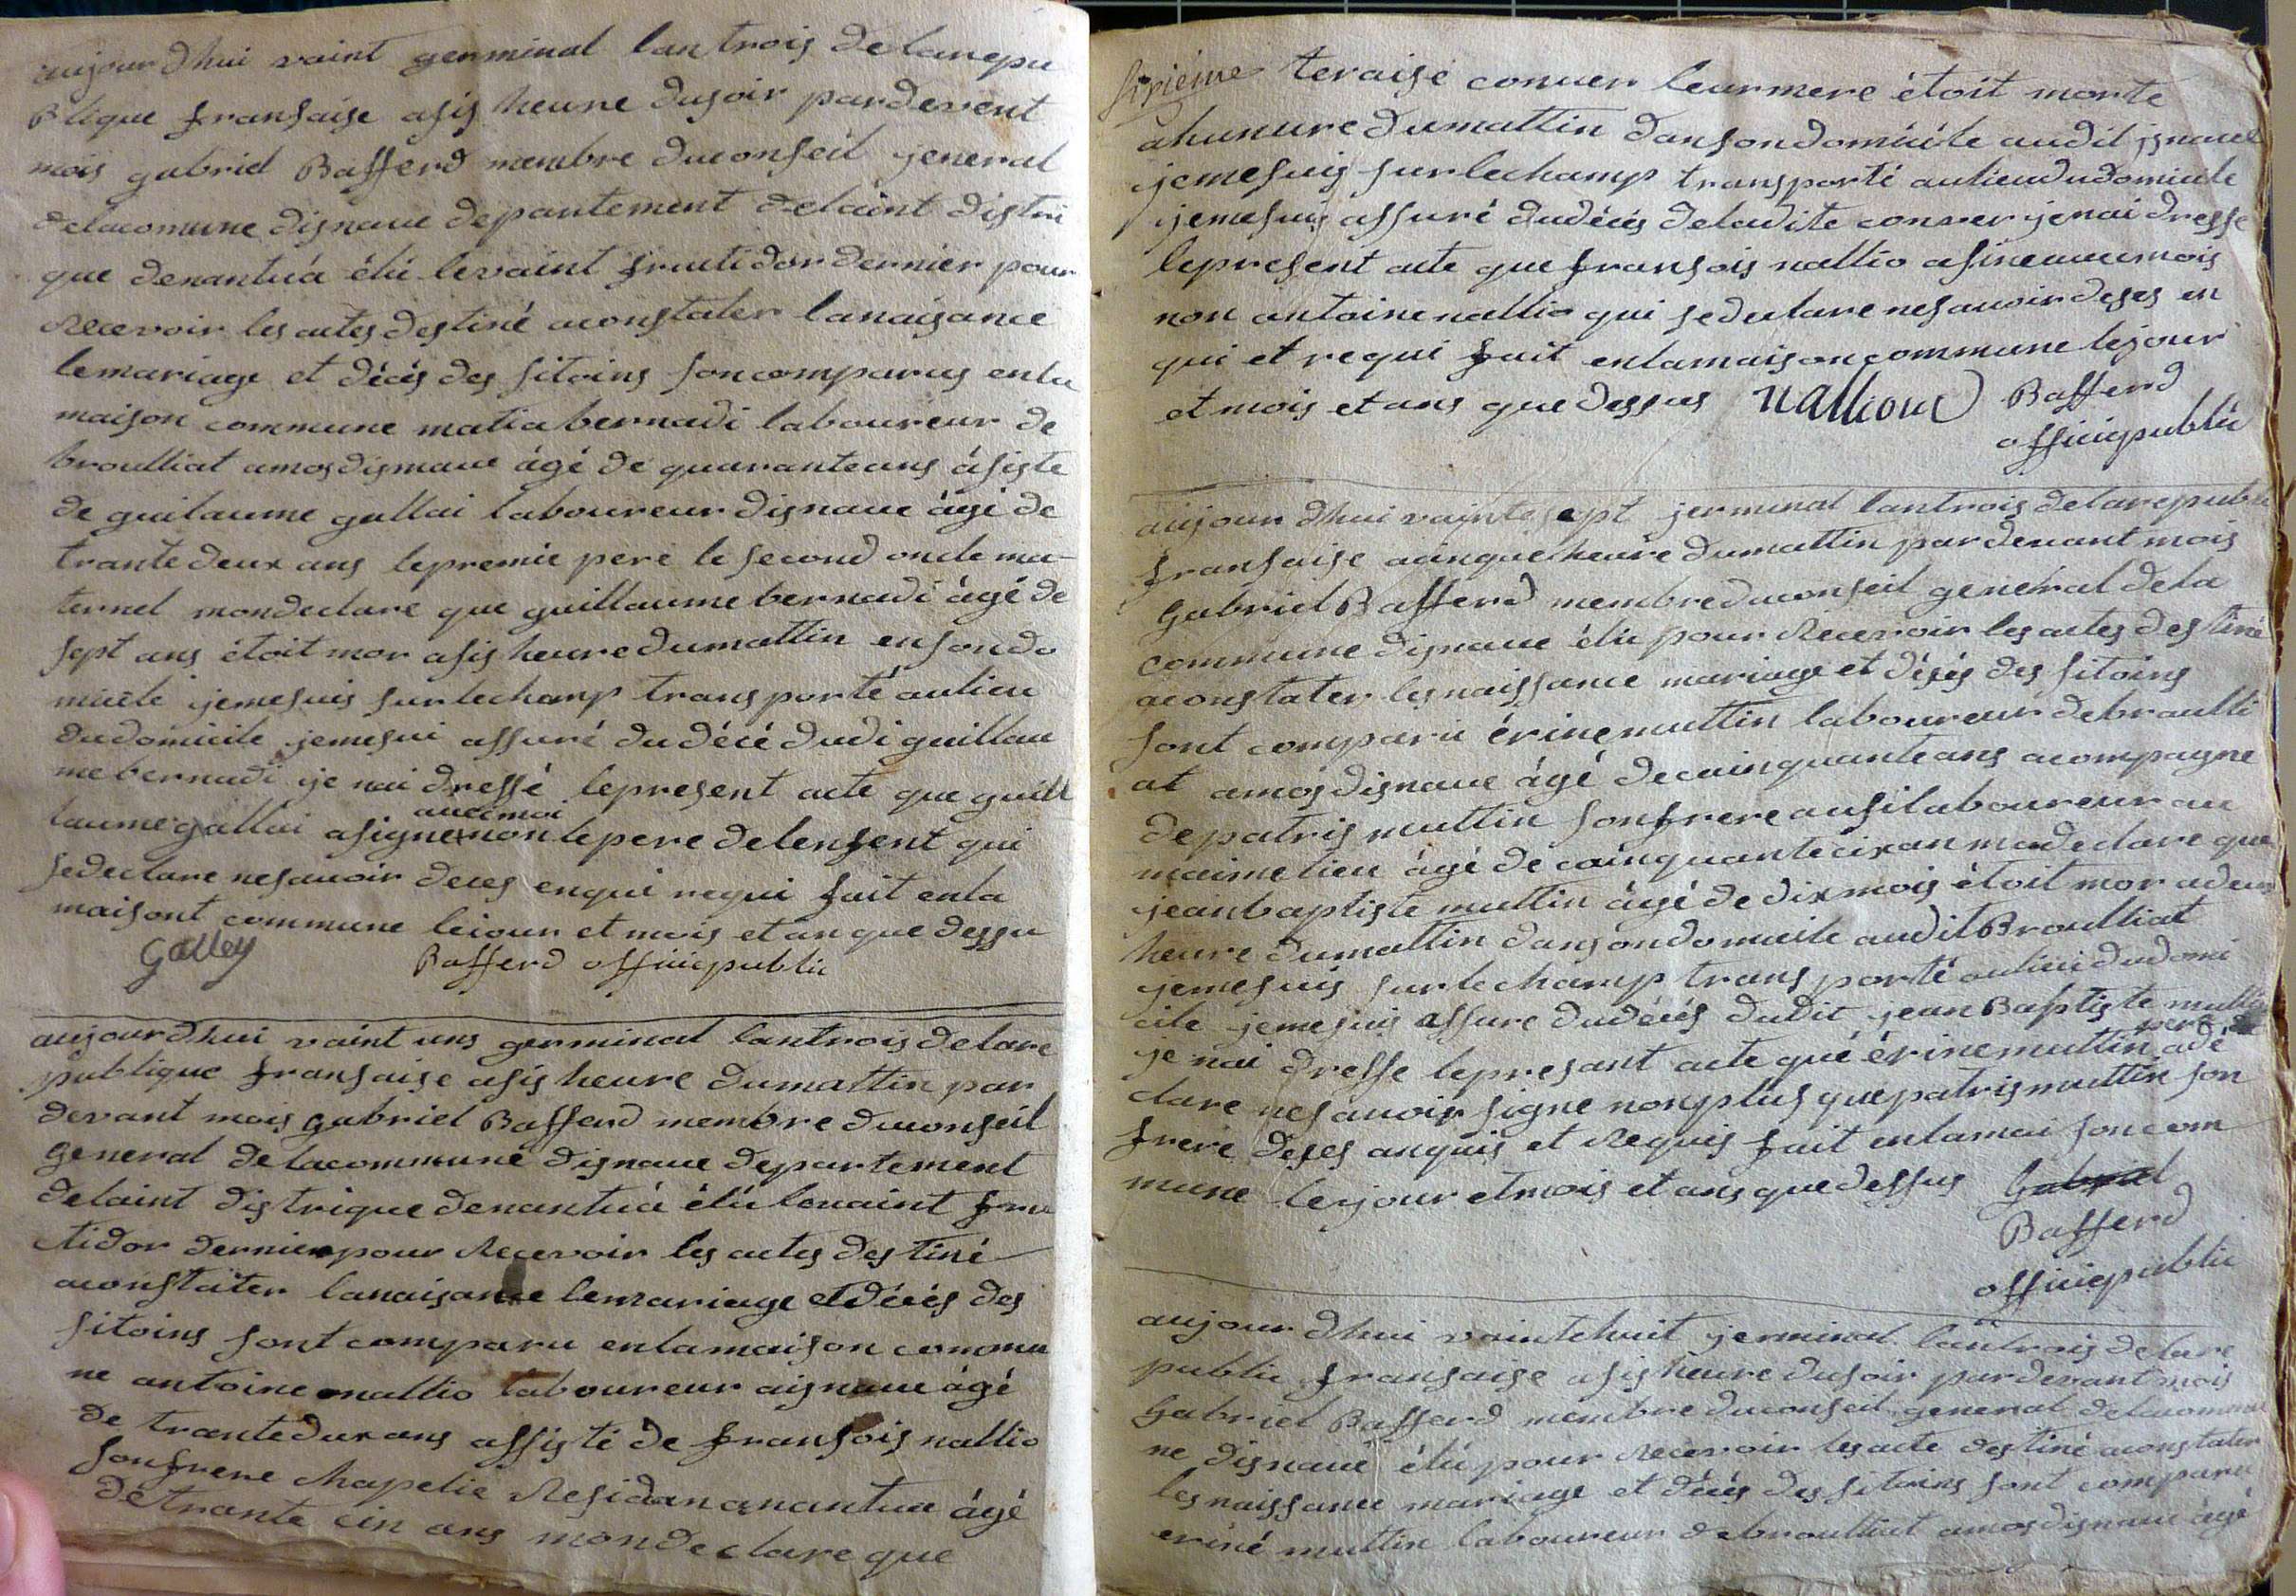 aujourdhui vaint germinal lan trois delarepu
Blique fransaise asis heure dusoir pardevent
mois gabriel Bafferd membre duconseil jeneral
delacomune dignaue departement delaint distri
que denantua élû levaint fructidor dernier pour
Recevoir les actes destiné aconstater lanaisance
lemariage et décés des sitoins soncomparus enla
maison commune matia bernadi laboureur de
broulliat amos dignaue àgé de quaranteans ásiste
de guilaume gallai laboureur dignaue àgé de
trante deux ans lepremie pere le second oncle ma-
ternel mondeclare que guillaume bernadi àgé de
sept ans étoit mor asis heure dumattin ensondo
micile jemesuis surlechamp transporté aulieu
dudomicile jemesui assuré dudécé dudi guillau
mebernadi je nai dressé lepresent acte que guill
aueemoi
laumegallai asigne non lepere delensent qui
sedeclare nesauoir deces enqui requi fait enla
maisont commune leiour et mois etan que dessu
Galley
Bafferd officiepublic
aujourdhui vaint uns germinal lantrois delare
publique fransaise asis heure dumattin par
devant mois gabriel Bafferd membre duconseil
general delacommune dignaue departement
delaint distrique denantuá élû levaint fru
ctidor dernier pour Recevoir les actes destiné
aconstater lanaisance lemariage et décés des
sitoins sont comparu enlamaison commu
ne antoine nallio laboureur aignaue àgé
de trantedux ans assisté de fransois nallio
sonfrere chapelie Residan anantua àgé
de trante cin ans mondeclare que
teraise conver leurmere étoit morte
ahuneure dumattin dansondomicile audit ignaue
jemesuis surlechamp transporté aulieududomicile
jemesuis assuré dudécés deladite conver jenai dresse
lepresent acte que fransois nallio asineauecmois
non antoine nallio qui sedeclare nesauoir deses en
qui et requi fait enlamaison commune lejour
et mois et ans que dessus nalliour Bafferd
officiepublic
aujourdhui vaintesept jerminal lantrois delarepubli
fransaise acinqueheure dumattin pardeuant mois
Gabriel Bafferd membre duconseil general dela
commune dignaue élû pour Recevoir les actes destiné
aconstater lesnaissance mariage et désés des sitoins
sont comparu érine muttin laboureur debroulli
at amos dignaue àgé decainquanteans acompagne
depatris muttin sonfrere ausilaboureur au
maime lieu àgé de cainquantecixan madeclare que
jeanbaptiste muttin àgé de dix mois étoit mor adeux
heure dumattin dansondomicile audit Broulliat
jemesuis surlechamp transporté aulieu dudomi
cile jemesuis assure dudécés dudit jean Baptiste muttin
pere
je nai dresse lepresant acte qué érine muttin adé
clare nesauoir signe nonplus quepatris muttin son
frere deses anquis et Requis fait enlamai soncom
mune lejour etmois et ans quedessus Gabriel
Bafferd
officiepublic
aujourdhui vaintehuit jerminal lantrois delare
public fransaise asisheure dusoir pardevant mois
Gabriel Bafferd membre duconseil general delacommu
ne dignaue élû pour Recevoir lesacte destiné aconstater
lesnaissance mariage et décés dessitoins sont comparu
eriné muttin laboureur debroulliat amos dignaue àgé